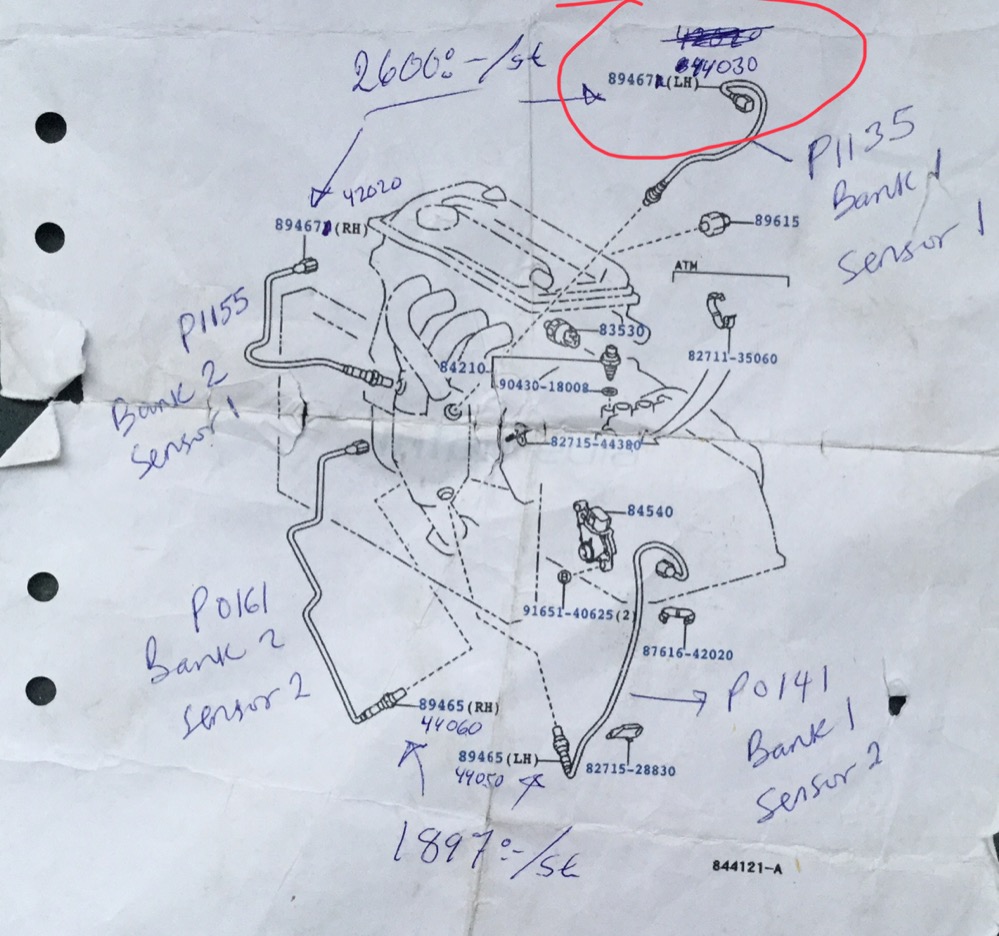 2600:-/st
44030
89467(LH)
P1135
Bank 1
Sensor 1
42020
89467(RH)
89615
ATM
P1155
Bank 2
Sensor 1
83530
82711-35060
84210
90430-18008
82715-44380
84540
91651-40625(2)
87616-42020
P0161
Bank 2
Sensor 2
P0141
Bank 1
Sensor 2
89465(RH)
44060
89465(LH)
44050
82715-28830
1897:-/st
844121-A